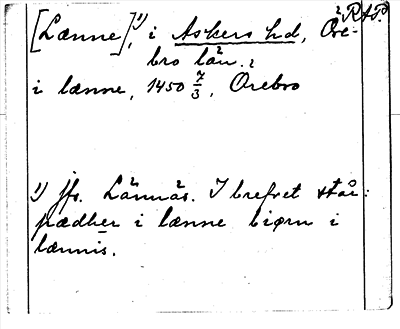 [Lænne]¹⁾, i Askers hd, Öre-
bro län.
i lænne, 1450 7/3, Örebro
¹⁾ jfr. Lännäs. I brefvet står:
pædher i lænne biørn i
lænnis.